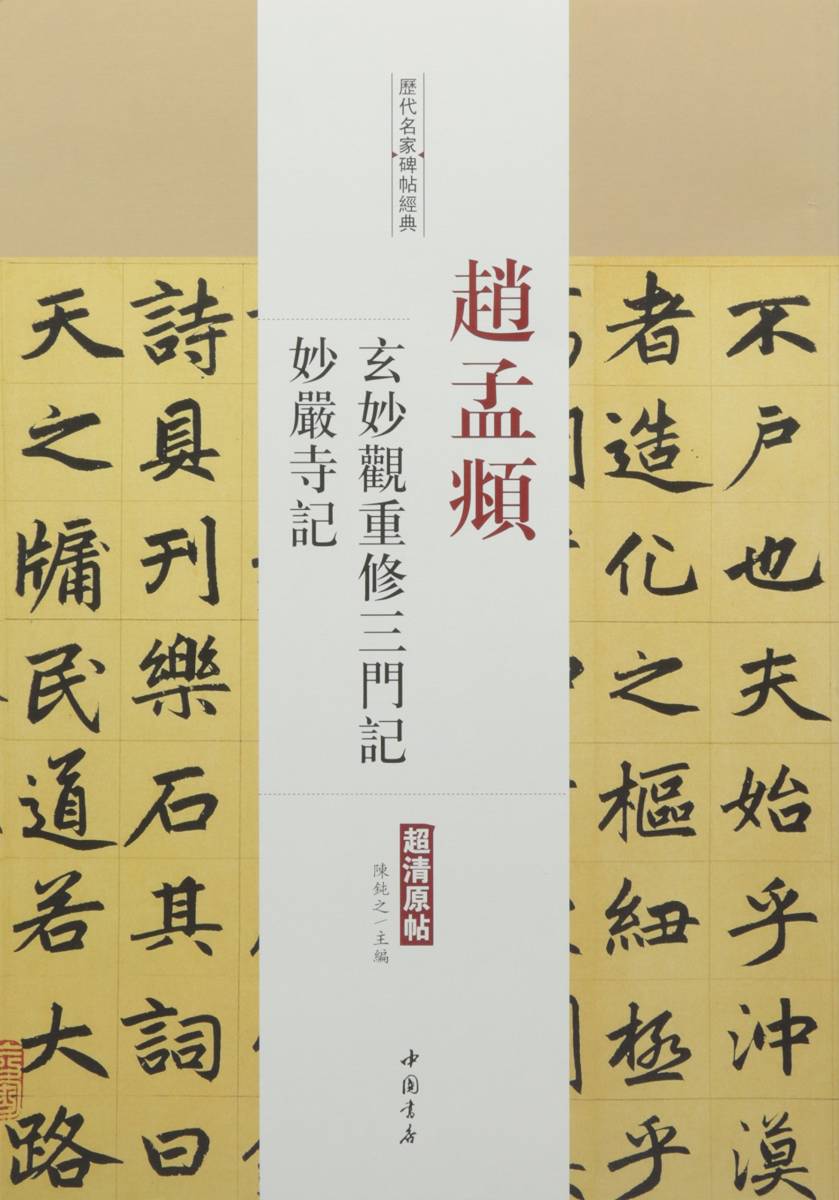 歷代名家碑帖經典
趙孟頫
玄妙觀重修三門記
妙嚴寺記
超清原帖
陳鈍之/主編
中國書店
不戶也夫始乎沖漠
者造化之樞紐極乎
詩具刊樂石其詞曰
天之牖民道若大路